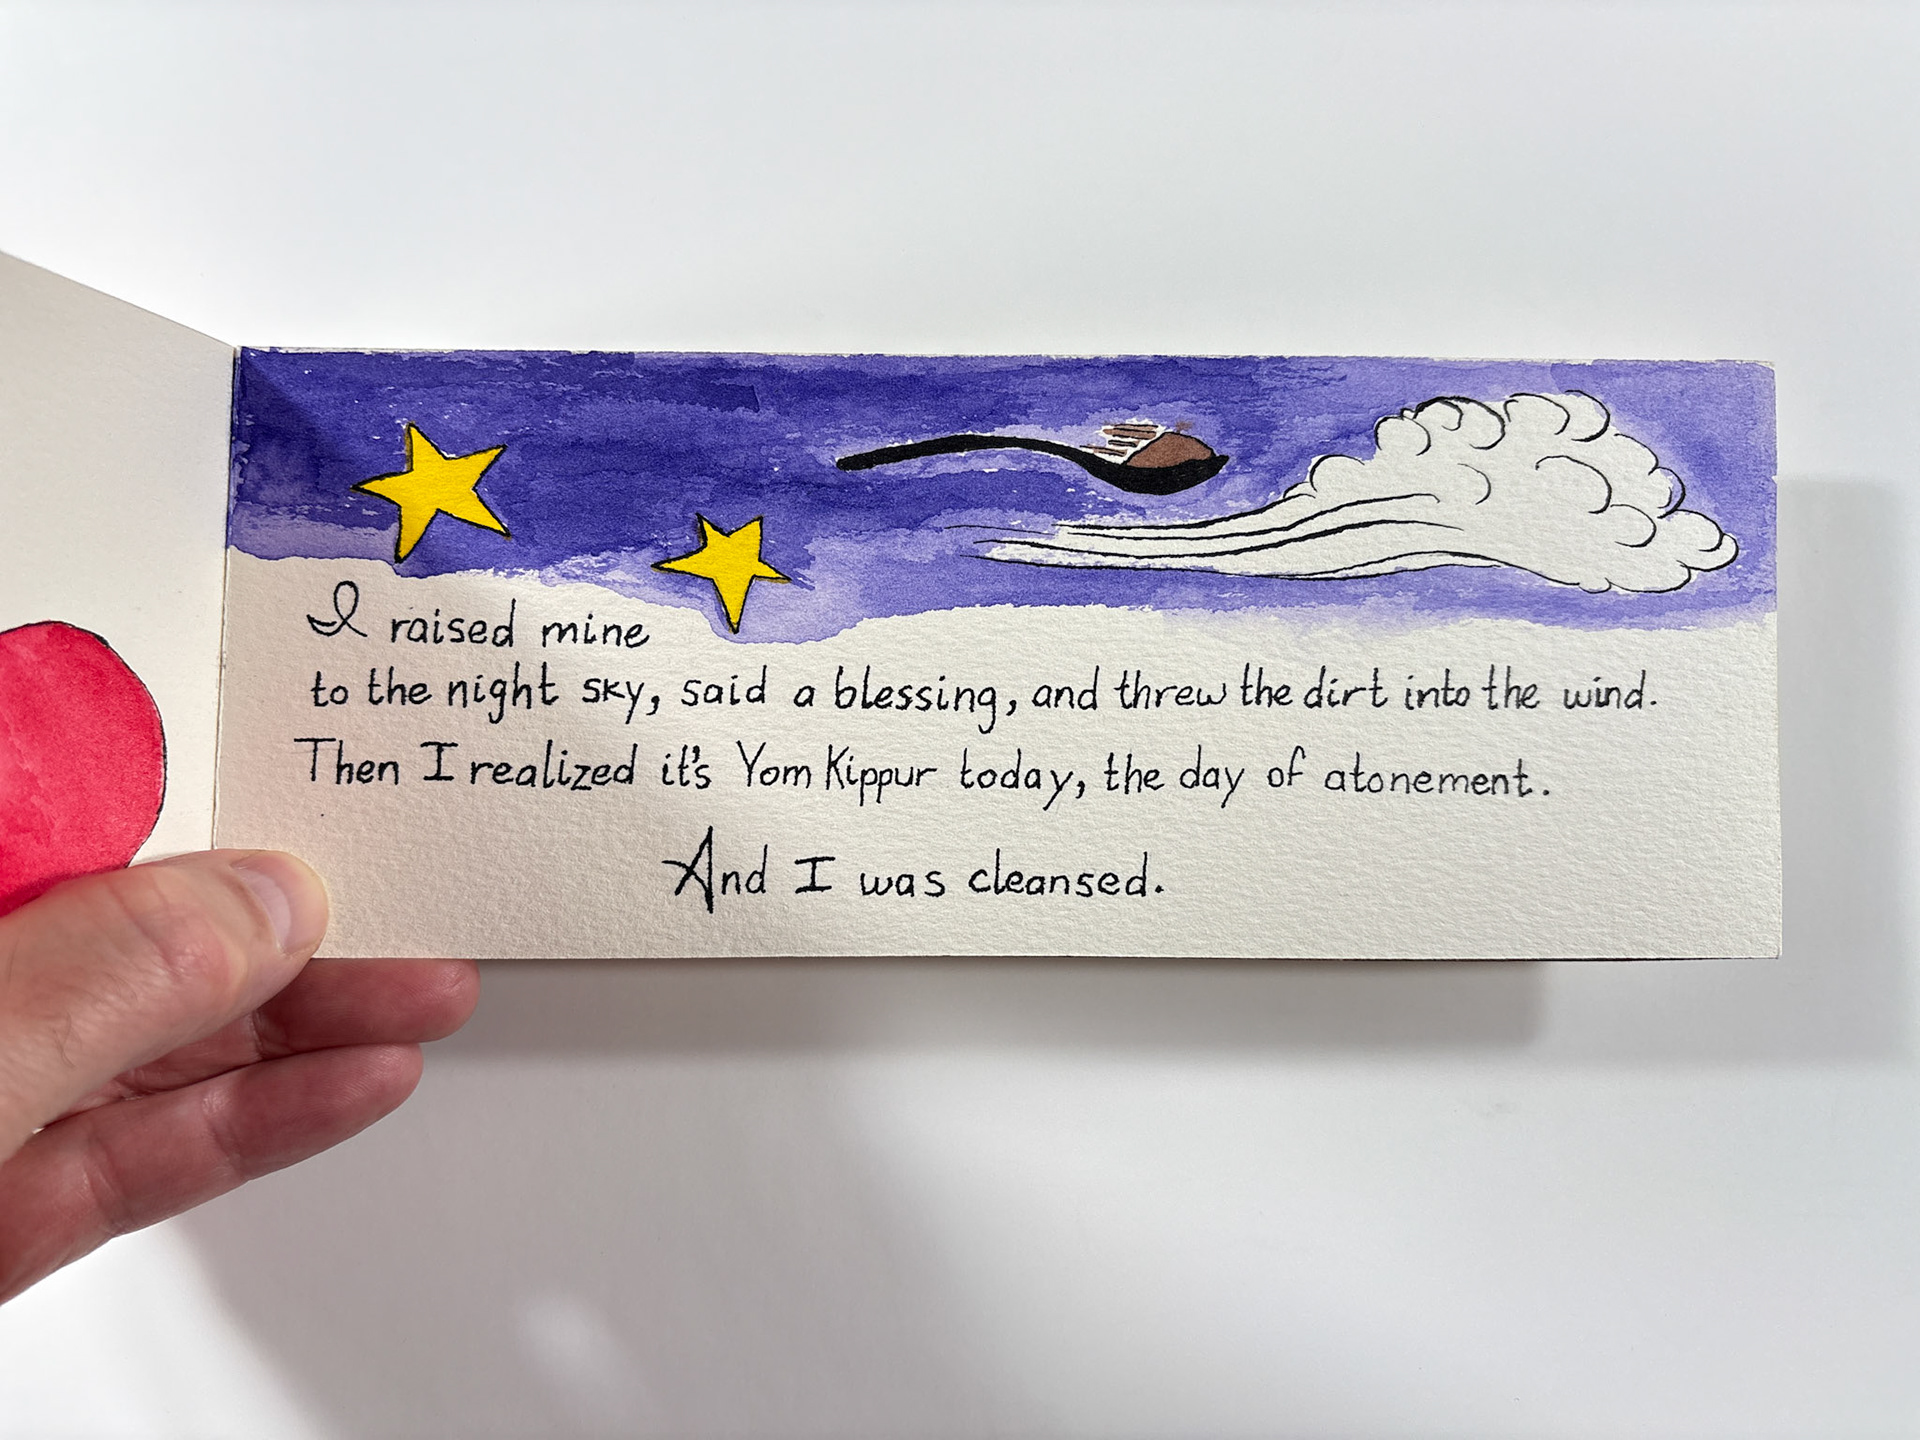 I raised mine
to the night sky, said a blessing, and threw the dirt into the wind.
Then I realized it's Yom Kippur today, the day of atonement.
And I was cleansed.